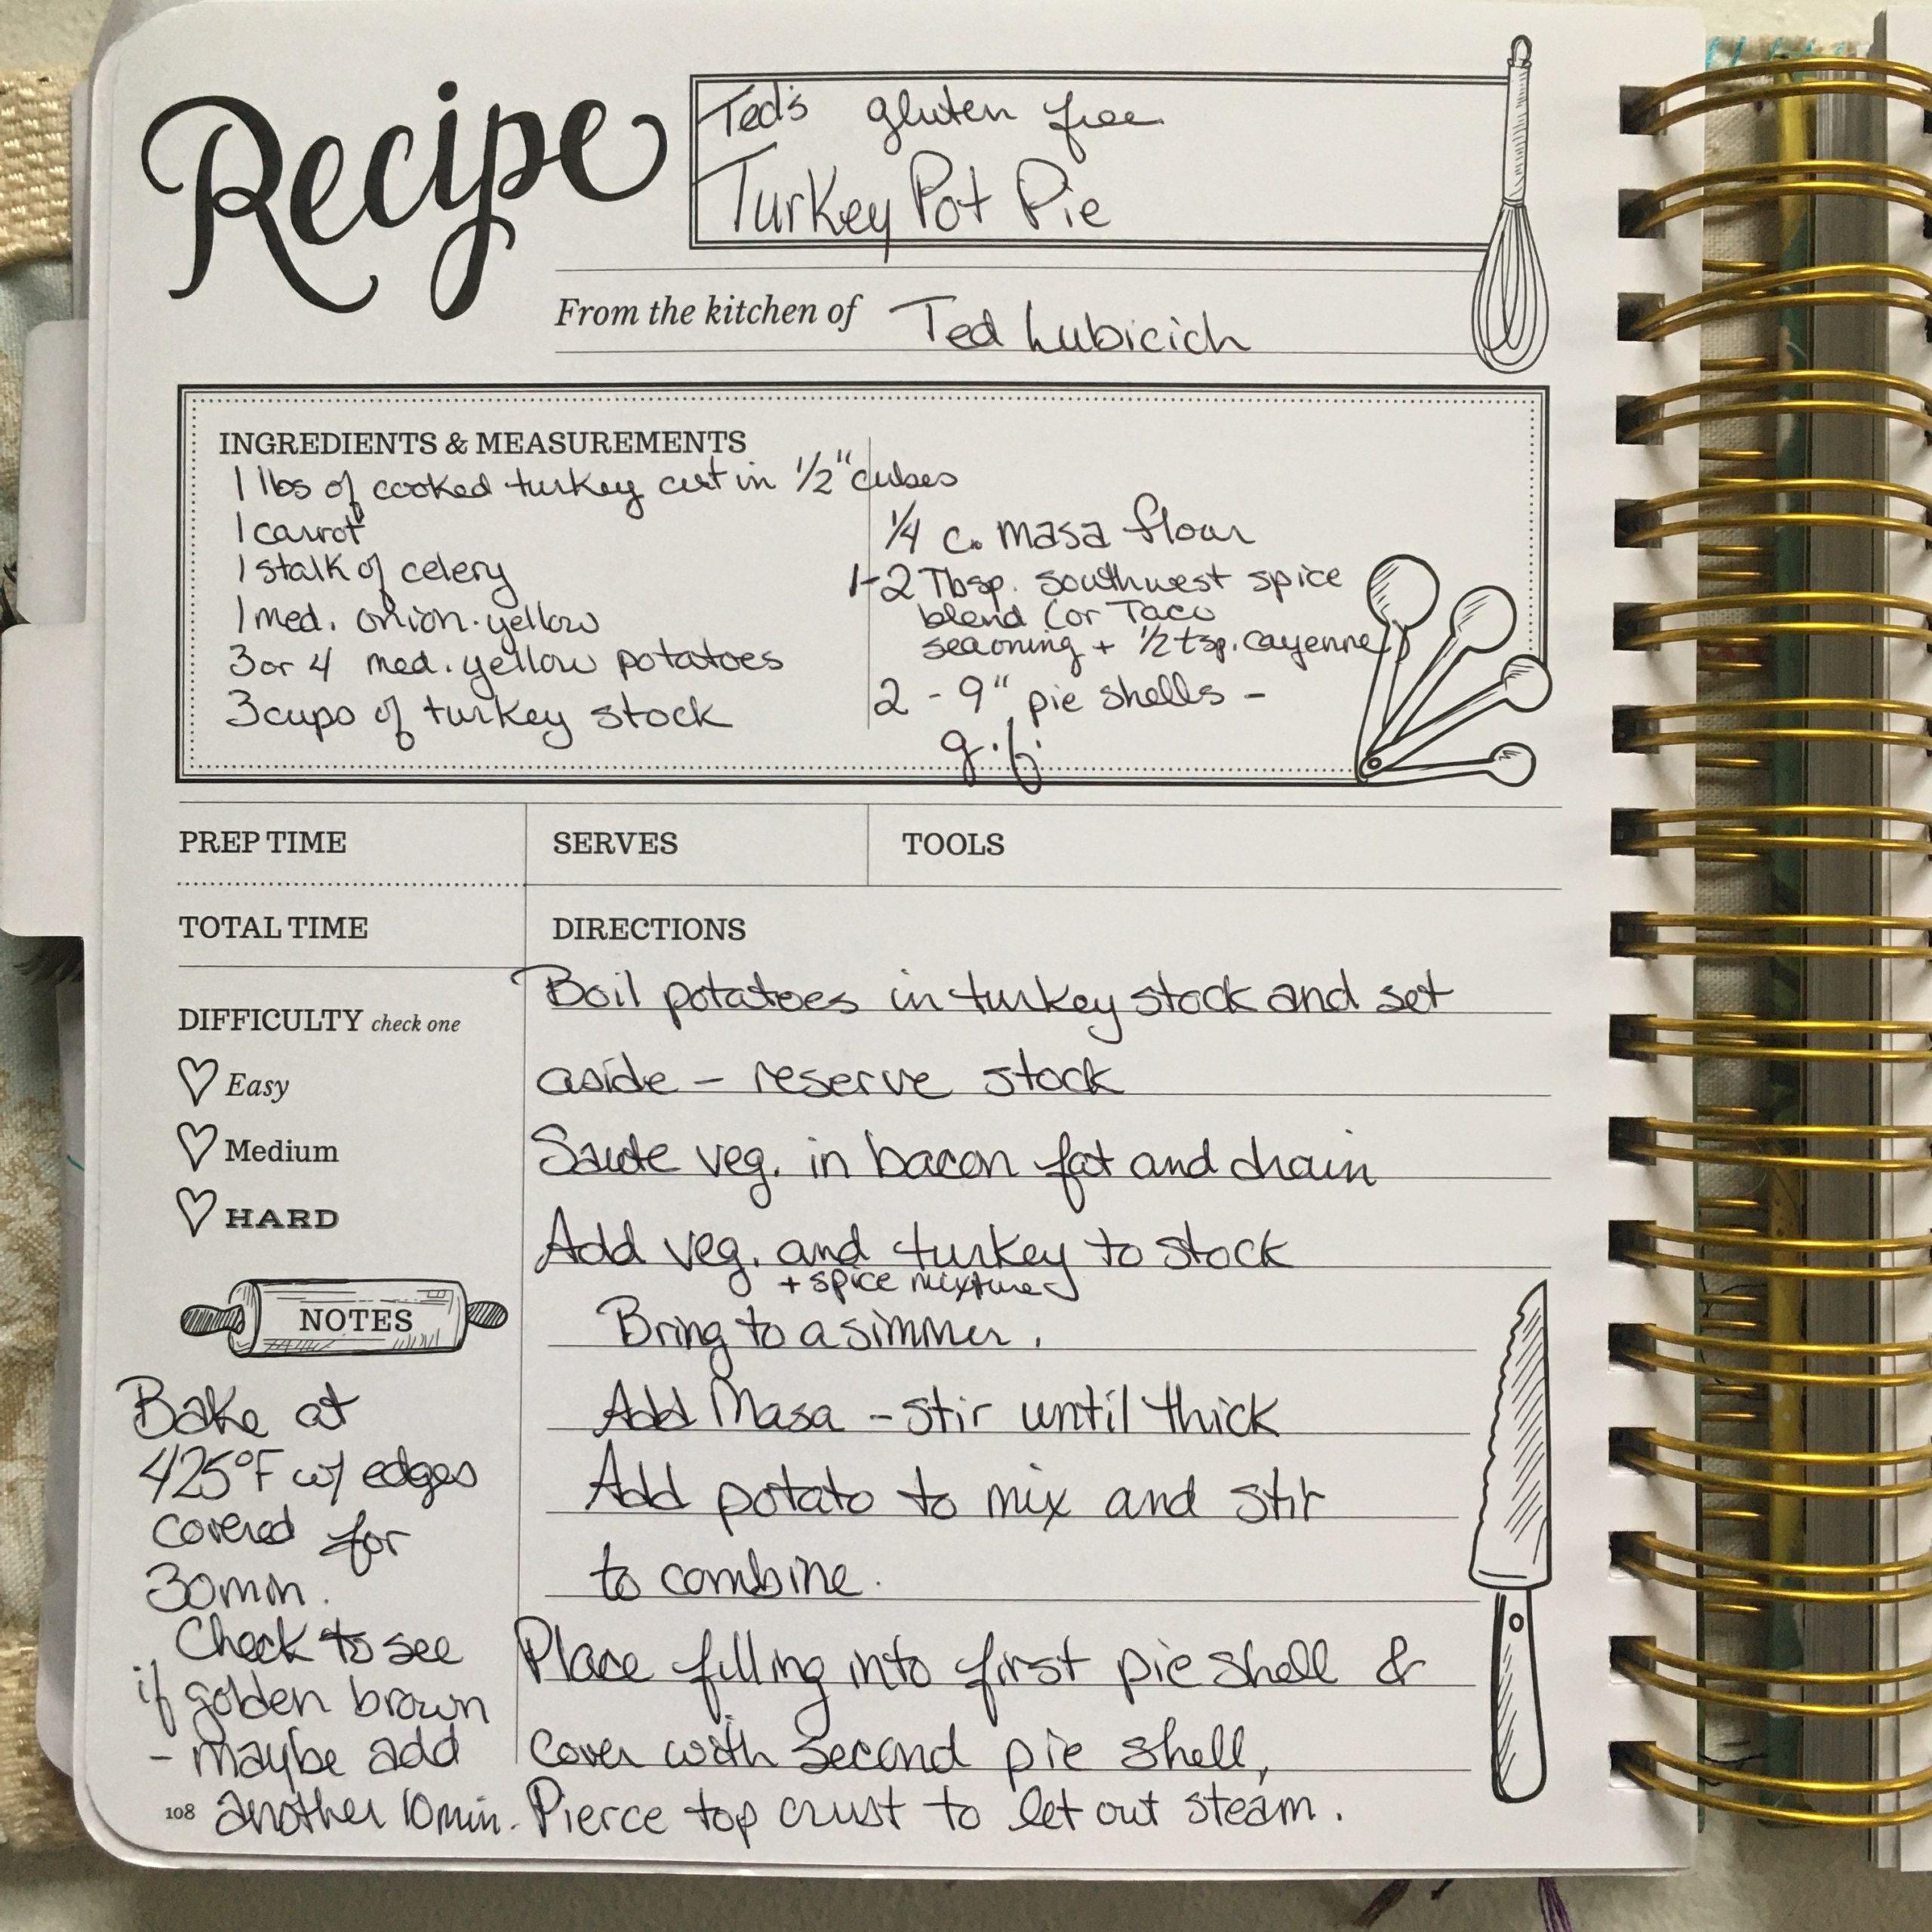 Recipe
Ted's gluten free
Turkey Pot Pie
From the kitchen of Ted Lubicich
INGREDIENTS & MEASUREMENTS
1 lbs of cooked turkey cut in 1/2" cubes
1 carrot
1 stalk of celery
1 med. onion - yellow
3 or 4 med. yellow potatoes
3 cups of turkey stock
1/4 c. masa flour
1-2 Tbsp. southwest spice
blend (or Taco
seasoning + 1/2 tsp. cayenne)
2 - 9" pie shells -
g.f.
PREP TIME
SERVES
TOOLS
TOTAL TIME
DIFFICULTY check one
Easy
Medium
HARD
NOTES
Bake at
425°F w/ edges
covered for
30 min.
Check to see
if golden brown
- maybe add
another 10 min.
DIRECTIONS
Boil potatoes in turkey stock and set
aside - reserve stock
Saute veg. in bacon fat and drain
Add veg. and turkey to stock
+ spice mixture
Bring to a simmer.
Add Masa - stir until thick
Add potato to mix and stir
to combine.
Place filling into first pie shell &
cover with second pie shell,
Pierce top crust to let out steam.
108